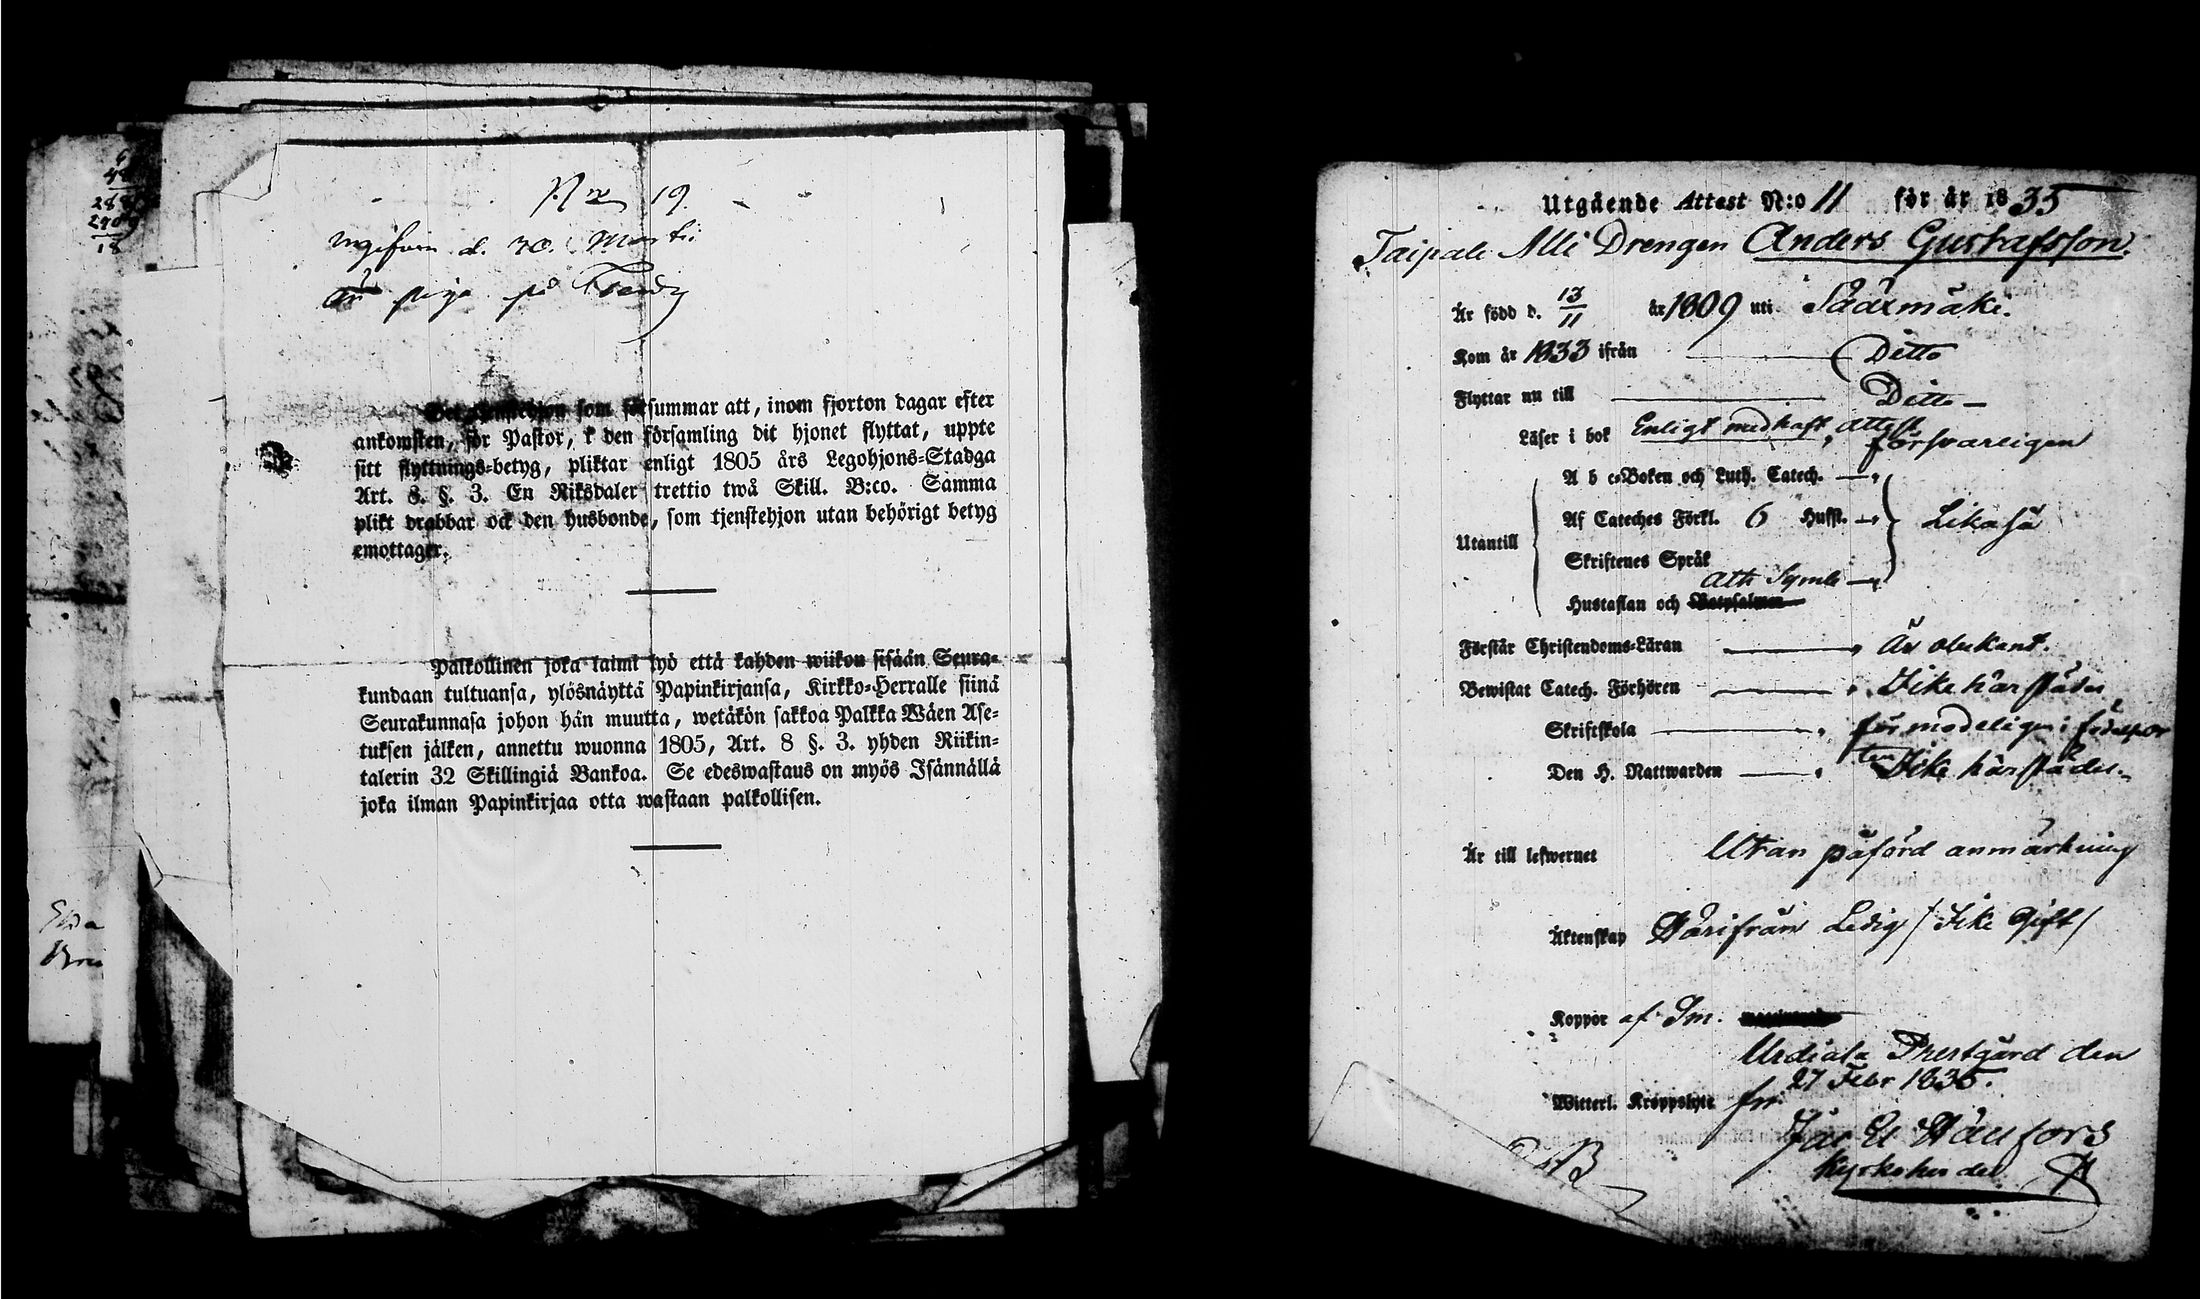 N:o 19.
ingifven d. 30. Martii
är piga på
Det tjenstehjon som försummar att, inom fjorton dagar efter
ankomsten, för Pastor, i den församling dit hjonet flyttat, uppte
sitt flyttnings-betyg, pliktar enligt 1805 års Legohjons-Stadga
Art. 8. §. 3. En Riksdaler trettio twå Skill. B:co. Samma
plikt drabbar ock den husbonde, som tjenstehjon utan behörigt betyg
emottager.
Palkollinen joka laimi lyö että kahden wiikon sisään Seura-
kundaan tultuansa, ylösnäyttä Papinkirjansa, Kirkko-Herralle siinä
Seurakunnasa johon hän muutta, wetäkön sakkoa Palkka Wäen Ase-
tuksen jälken, annettu wuonna 1805, Art. 8 §. 3. yhden Riikin-
talerin 32 Skillingiä Bankoa. Se edeswastaus on myös Isännällä
joka ilman Papinkirjaa otta wastaan palkollisen.
Utgående Attest N:o 11 för år 1835
Taipale Alli Drengen Anders Gustafsson.
Är född d. 13/11 år 1809 uti Sääxmäki.
Kom år 1833 ifrån Ditto
Flyttar nu till Ditto
Läser i bok Enligt medhaft attest försvarligen
A b c-Boken och Luth. Catech.
Af Cateches Förkl. 6 Hufst. Likaså
Utantill
Skriftenes Språk
Ath. Symb.
Hustaflan och Botpsalmen
Förstår Christendoms-Läran Är obekant.
Bewistat Catech. Förhören Icke härstädes
Skriftskola förmodeligen i födelseor
ten
Den H. Nattwarden Icke härstädes.
Är till lefwernet Utan påförd anmärkning
Äktenskap Härifrån Ledig /Icke Gift/
Koppor af. Sm.
Urdiala Prestgård den
27 Febr 1835.
Witterl. Kroppslyte
Kyrkoherde